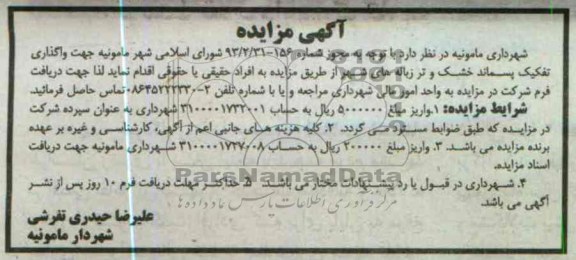 آگهی مزایده
شهرداری مامونیه در نظر دارد با توجه به مجوز شماره ۱۵۶-۹۳/۲/۳۱ شورای اسلامی شهر مامونیه جهت واگذاری
تفکیک پسماند خشک و تر زباله های شهر از طریق مزایده به افراد حقیقی یا حقوقی اقدام نماید لذا جهت دریافت
فرم شرکت در مزایده به واحد امور مالی شهرداری مراجعه و یا با شماره تلفن ۲-۰۸۶۴۵۲۲۲۳۳۰ تماس حاصل فرمائید.
شرایط مزایده: ۱.واریز مبلغ ۵۰۰۰۰۰۰ ریال به حساب ۳۱۰۰۰۰۱۷۳۲۰۰۱ شهرداری به عنوان سپرده شرکت
در مزایده که طبق ضوابط مسترد می گردد. ۲. کلیه هزینه های جانبی اعم از آگهی، کارشناسی و غیره بر عهده
برنده مزایده می باشد. ۳. واریز مبلغ ۲۰۰۰۰۰ ریال به حساب ۳۱۰۰۰۰۱۷۲۷۰۰۸ شهرداری مامونیه جهت دریافت
اسناد مزایده.
۴. شهرداری در قبول یا رد پیشنهادات مختار می باشد. ۵. حداکثر مهلت دریافت فرم ۱۰ روز پس از نشر
آگهی می باشد.
ParsNamadData
مرکز فرآوری اطلاعات پارس نماد داده ها
علیرضا حیدری تفرشی
شهردار مامونیه